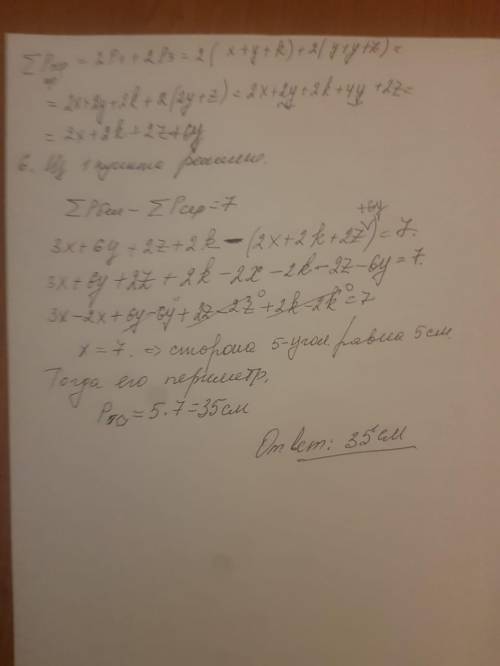 ∑Pсер = 2P₁ + 2P₃ = 2(x+y+k)+2(y+y+z)=
= 2x+2y+2k+2(2y+z)=2x+2y+2k+4y+2z=
= 2x+2k+2z+6y
6. Из 1 пункта решения.
∑Pбел - ∑Pсер=7
3x+6y+2z+2k-(2x+2k+2z+6y)=7.
3x+6y+2z+2k-2x-2k-2z-6y=7.
3x-2x+6y-6y+2z-2z+2k-2k=7
x=7. => сторона 5-угол. равна 5см.
Тогда его периметр,
P = 5·7=35см
Ответ: 35см